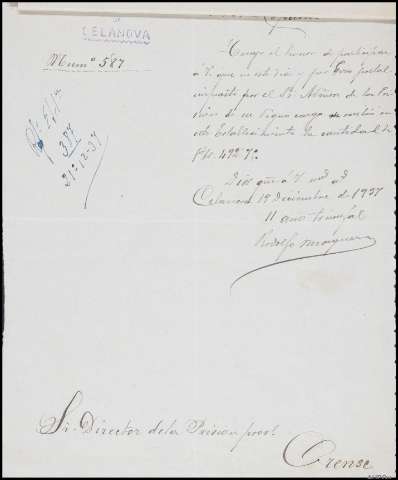 CELANOVA
Num° 587
387
21-12-37
Tengo el honor de participar
á V. que en este dia y por Giro postal
impuesto por el Sr. de la Pri
sión de su digno cargo se recibió en
este Establecimiento la cantidad de
Ptas. 492'72.
Dios gue á V. m.
Celanova 19 Diciembre de 1937
II año triunfal
Rodolfo
Sr. Director de la Prision provl
Orense